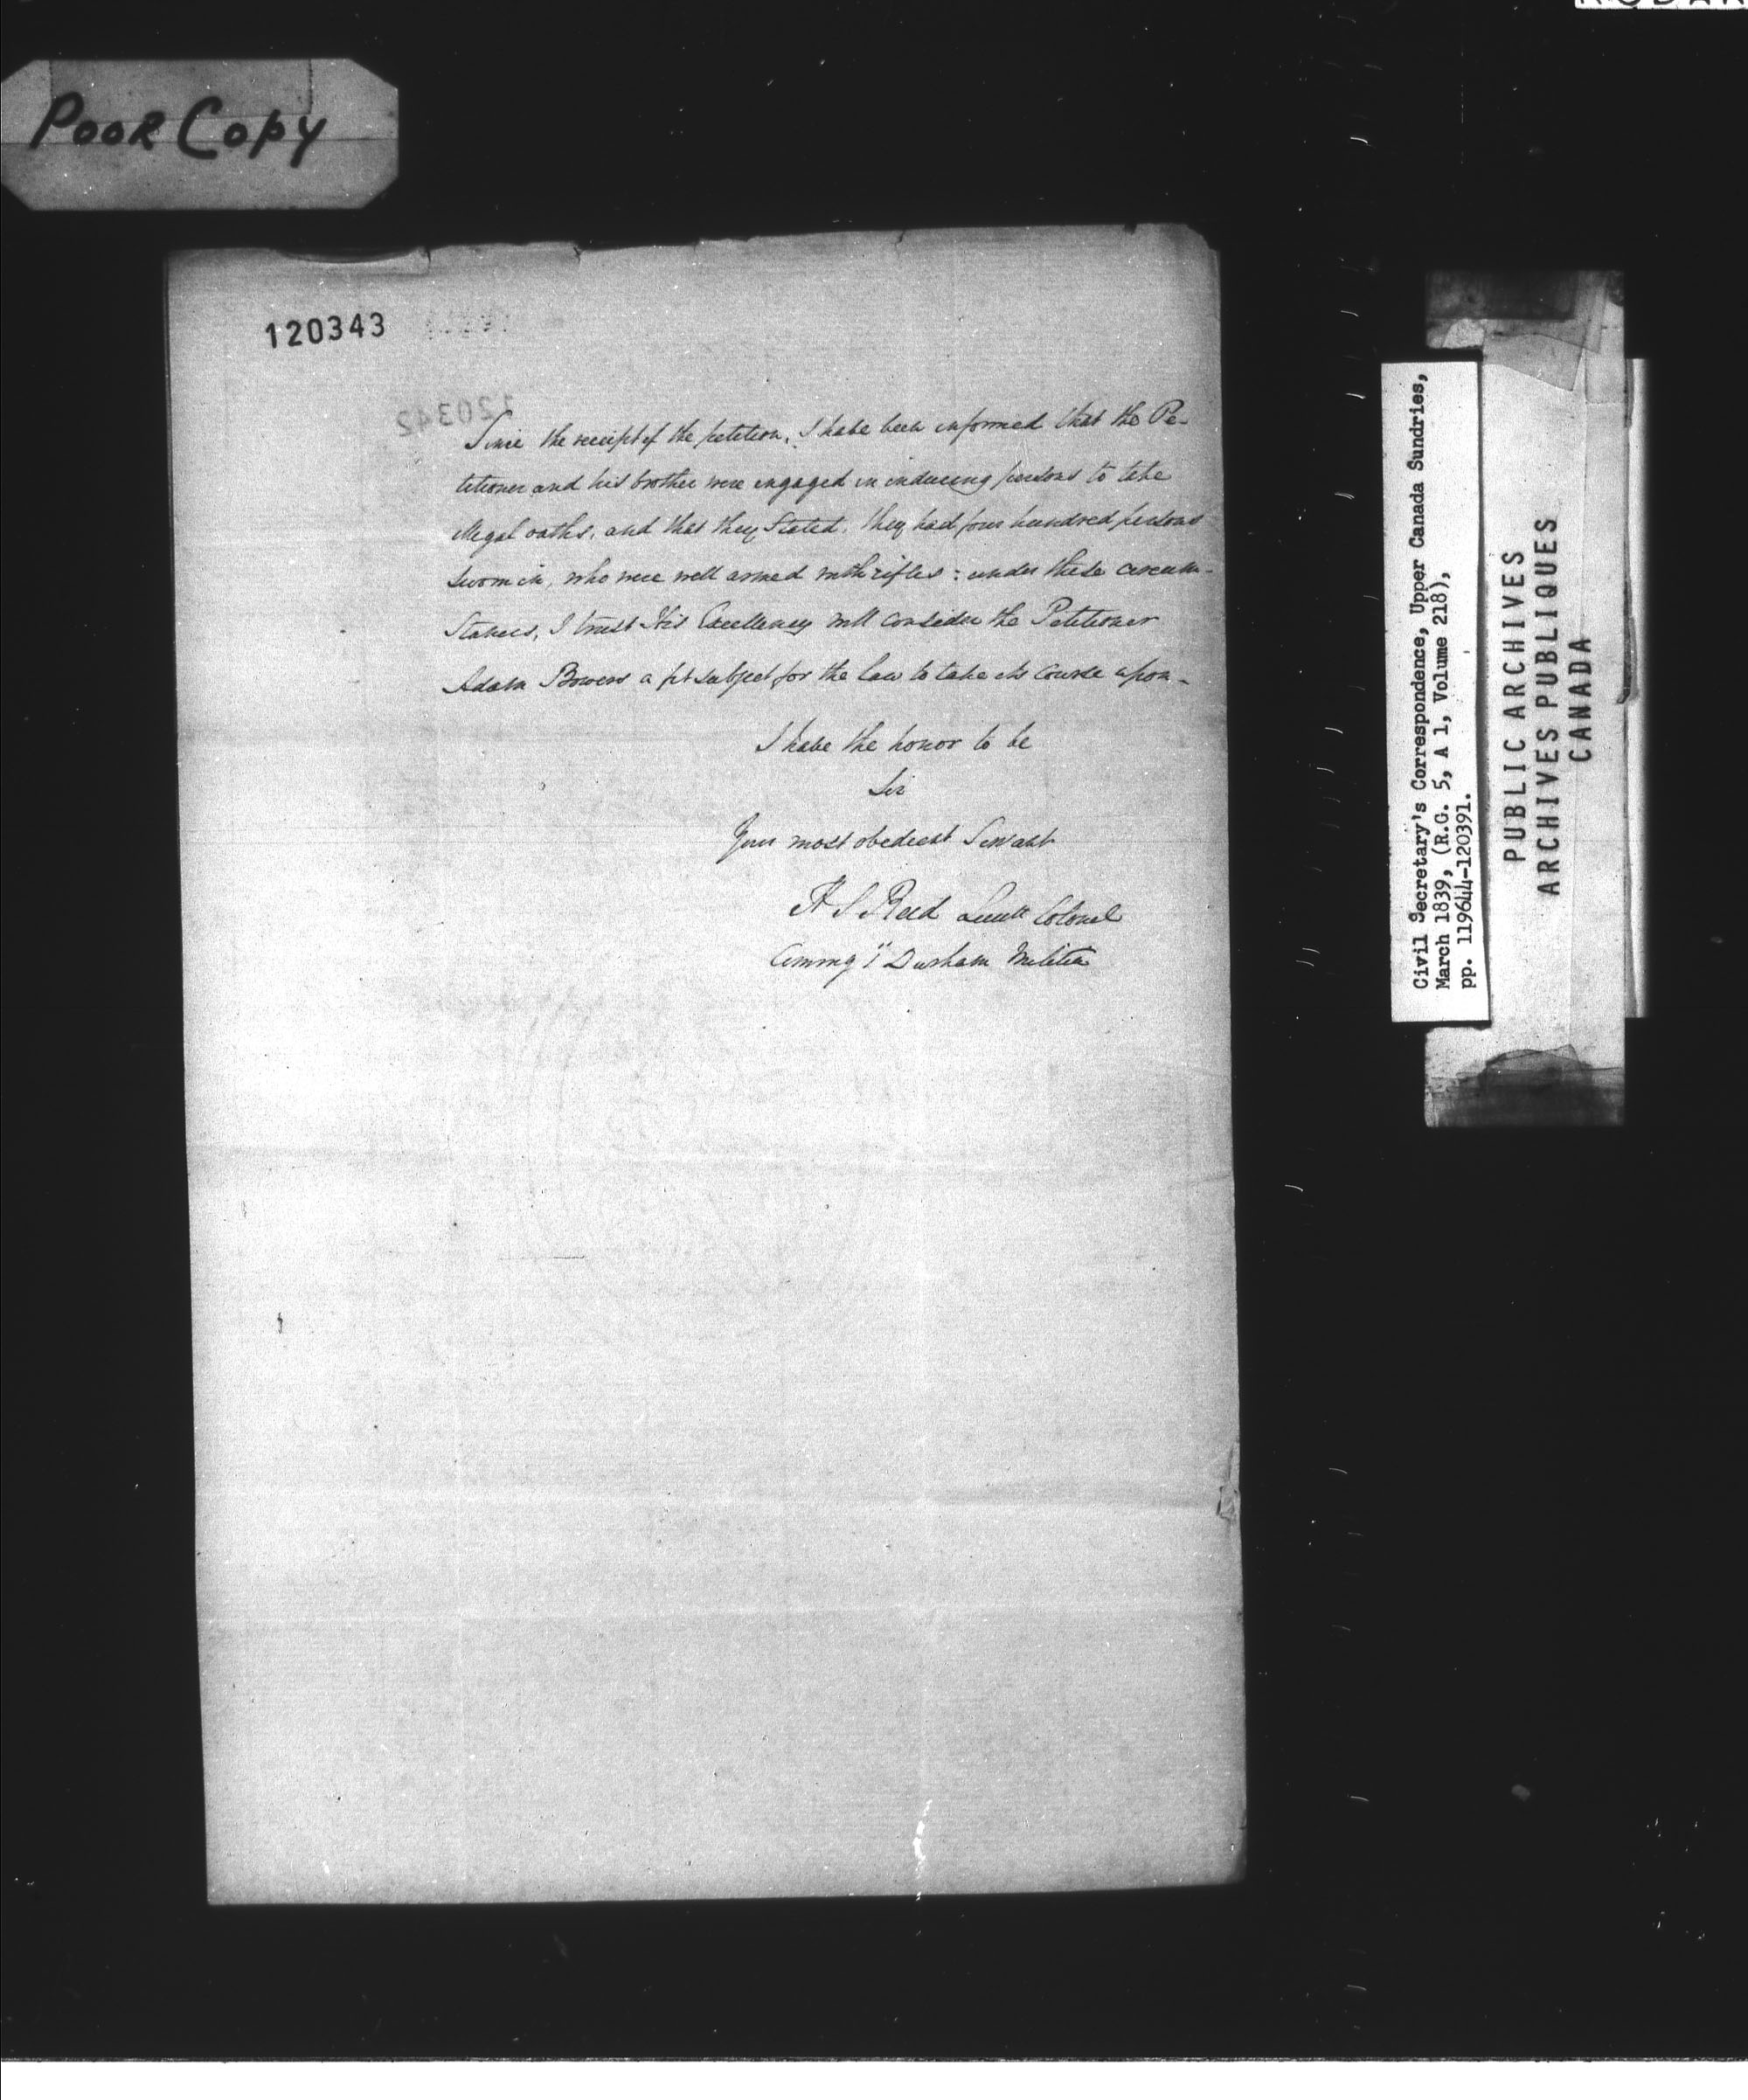 Poor Copy
120343
120342
Since the receipt of the petition, I have been informed that the Pe-
titioner and his brother were engaged in inducing persons to take
illegal oaths, and that they Stated, they had four hundred persons
sworn in, who were well armed with rifles : under these circum-
stances, I trust His Excellency will consider the Petitioner
Adam Bowers a fit subject for the law to take its course upon-
I have the honor to be
Sir
Your most obedient Servant
H S Reed Lieut Colonel
Commg 1st Durham Militia
Civil Secretary's Correspondence, Upper Canada Sundries,
March 1839, (R.G. 5, A 1, Volume 218),
pp. 119644-120391.
PUBLIC ARCHIVES
ARCHIVES PUBLIQUES
CANADA